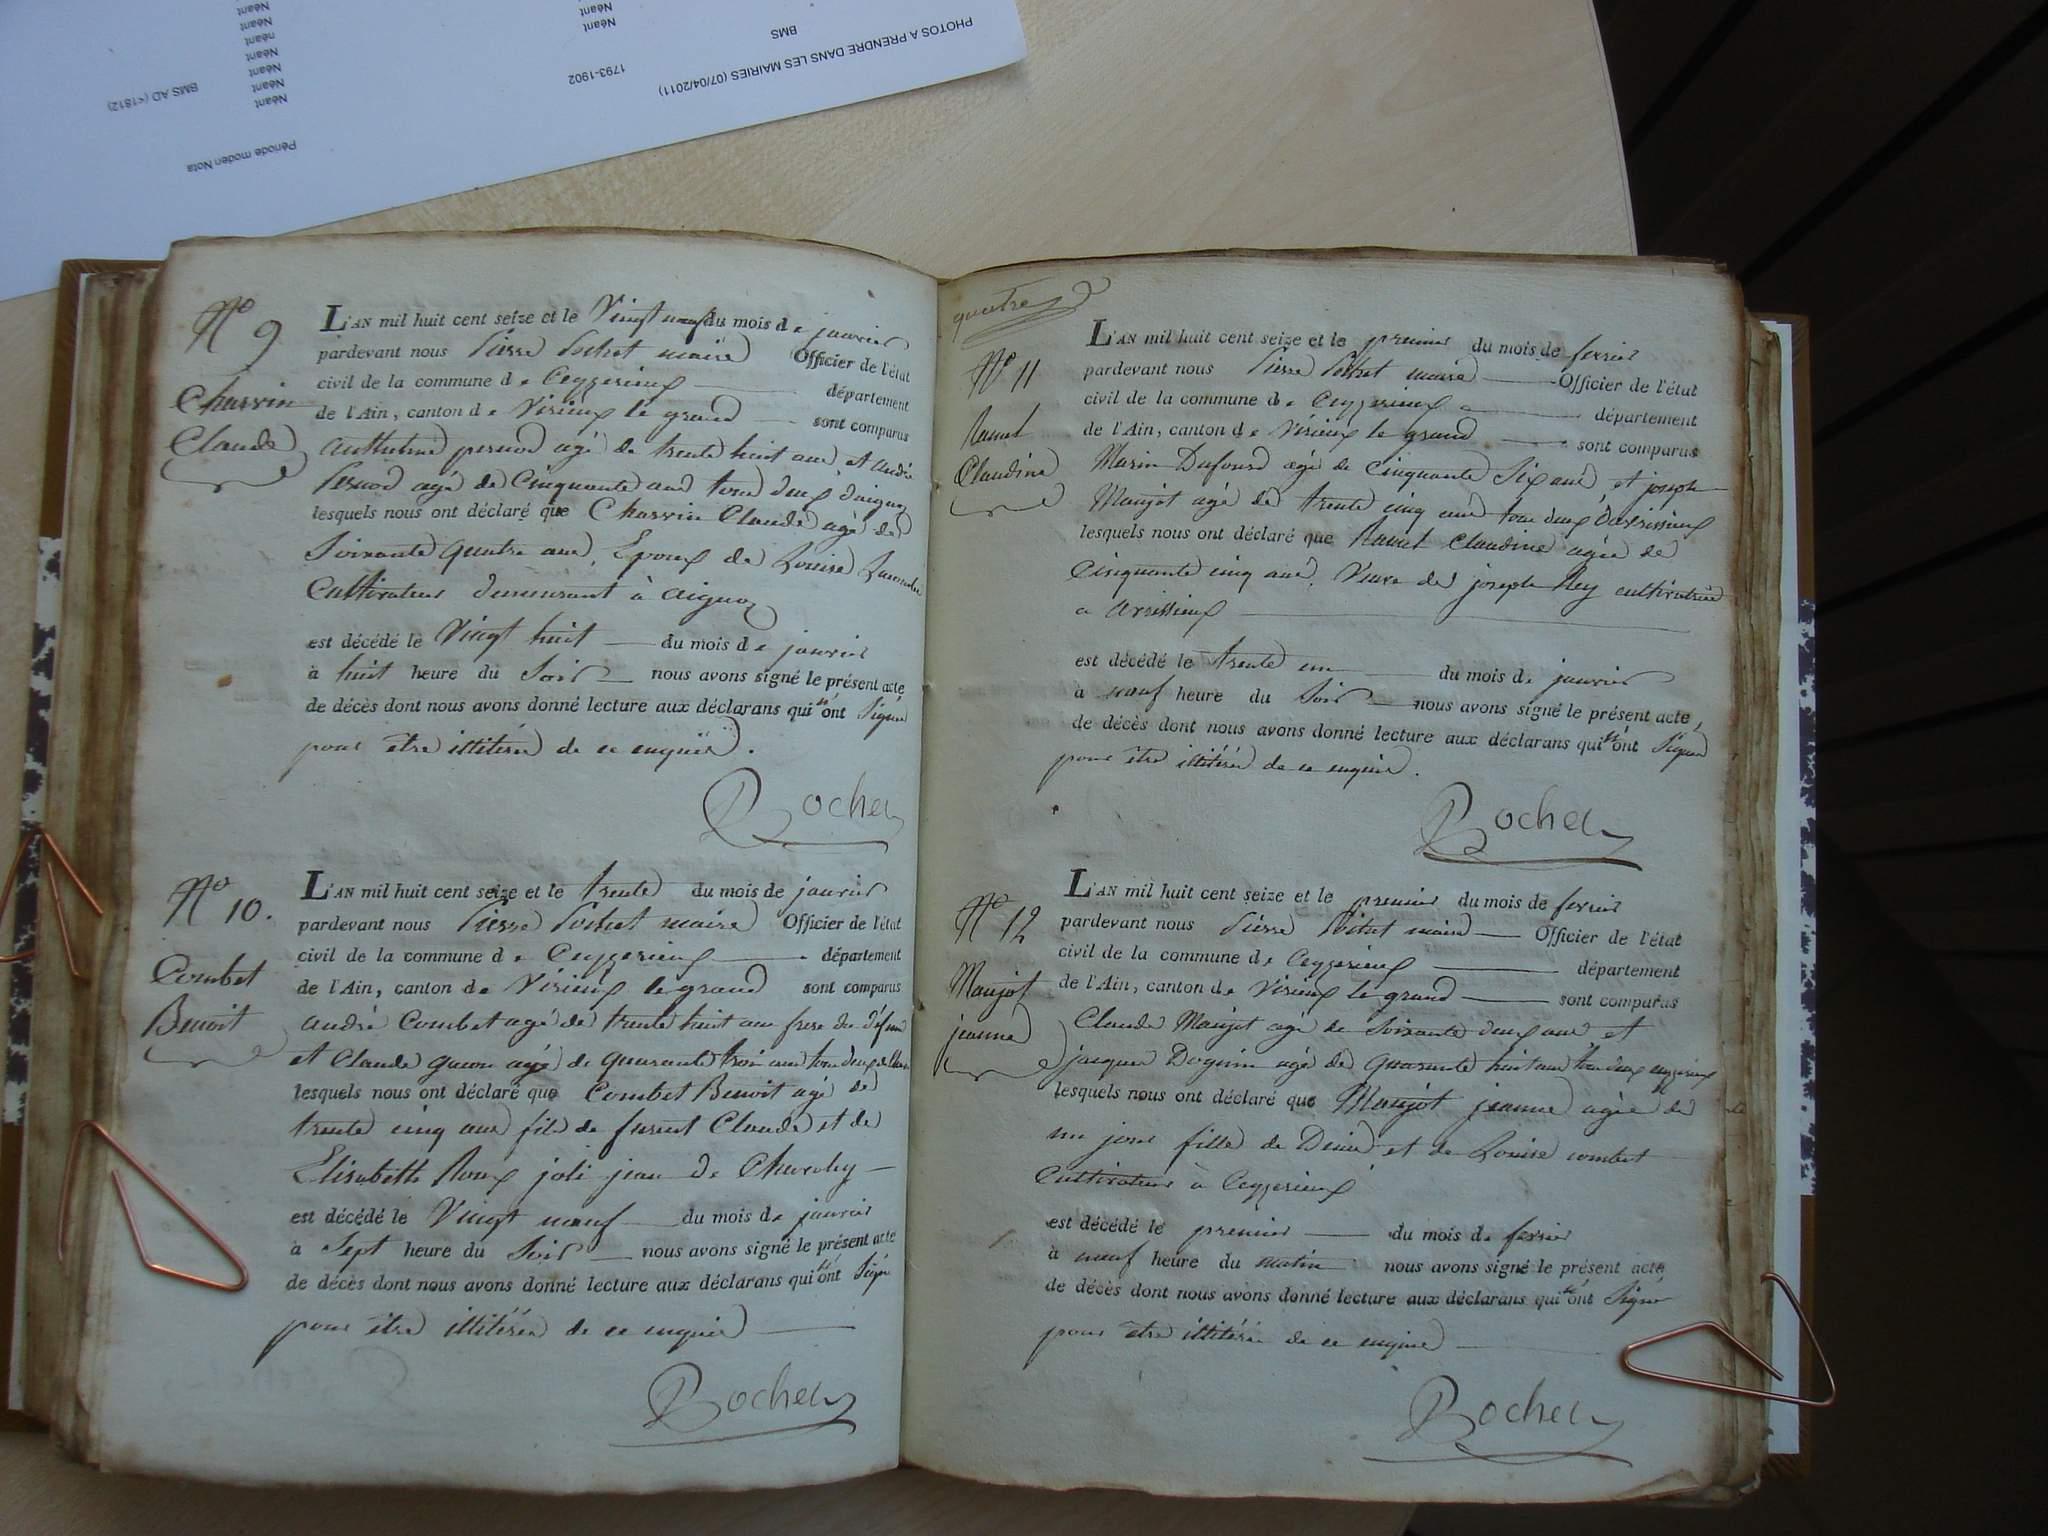 PHOTOS A PRENDRE DANS LES MAIRIES (07/04/2011)
BMS
1793-1902
Néant
Néant
BMS AD (<1812)
Néant
Néant
Néant
Néant
néant
Néant
Période moden Nota
N° 9
Charvin
Claude
L'AN mil huit cent seize et le Vingt neuf du mois de janvier
pardevant nous Pierre Pochet maire Officier de l'état
civil de la commune de Ceyzerieux département
de l'Ain, canton de Virieux le grand sont comparus
authelme pernod agé de trente huit ans, et andré
Pernod agé de Cinquante ans tous deux d'aignoz
lesquels nous ont déclaré que Charvin Claude agé de
Soixante quatre ans, Epoux de Louise
Cultivateur demeurant à aignoz
est décédé le Vingt huit du mois de janvier
à huit heure du Soir nous avons signé le présent acte
de décès dont nous avons donné lecture aux déclarans qui n'ont Signé
pour être illitéré de ce enquis.
Bochet
N° 10.
Combet
Benoit
L'AN mil huit cent seize et le trente du mois de janvier
pardevant nous Pierre Pochet maire Officier de l'état
civil de la commune de Ceyzerieux département
de l'Ain, canton de Virieux le grand sont comparus
andré Combet agé de trente huit ans frere du défunt
et Claude guion agé de quarante trois ans tous deux de
lesquels nous ont déclaré que Combet Benoit agé de
trente cinq ans fils de furent Claude et de
Elisabeth Roux joli jean de Chavoley
est décédé le Vingt neuf du mois de janvier
à Sept heure du Soir nous avons signé le présent acte
de décès dont nous avons donné lecture aux déclarans qui n'ont Signé
pour être illitéré de ce enquis
Bochet
quatre
N° 11
Ravet
Claudine
L'AN mil huit cent seize et le premier du mois de fevrier
pardevant nous Pierre Pochet maire Officier de l'état
civil de la commune de Ceyzerieux département
de l'Ain, canton de Virieux le grand sont comparus
Marin Dufour agé de Cinquante Six ans et joseph
Maujot agé de trente cinq ans tous deux d'avrissieux
lesquels nous ont déclaré que Ravet Claudine agée de
Cinquante cinq ans, Veuve de joseph Rey cultivatrice
a avrissieux
est décédé le trente un du mois de janvier
à neuf heure du Soir nous avons signé le présent acte,
de décès dont nous avons donné lecture aux déclarans qui n'ont Signé
pour être illitéré de ce enquis.
Bochet
N° 12
Maujot
jeanne
L'AN mil huit cent seize et le premier du mois de fevrier
pardevant nous Pierre Pochet maire Officier de l'état
civil de la commune de Ceyzerieux département
de l'Ain, canton de Virieux le grand sont comparus
Claude Maujot agé de Soixante deux ans et
jacques Doguin agé de quarante huit ans tous deux ceyzerieux
lesquels nous ont déclaré que Maujot jeanne agée de
un jour fille de Denis et de Louise combet
Cultivateur à Ceyzerieux
est décédé le premier du mois de fevrier
à neuf heure du matin nous avons signé le présent acte
de décès dont nous avons donné lecture aux déclarans qui n'ont Signé
pour être illitéré de ce enquis
Bochet